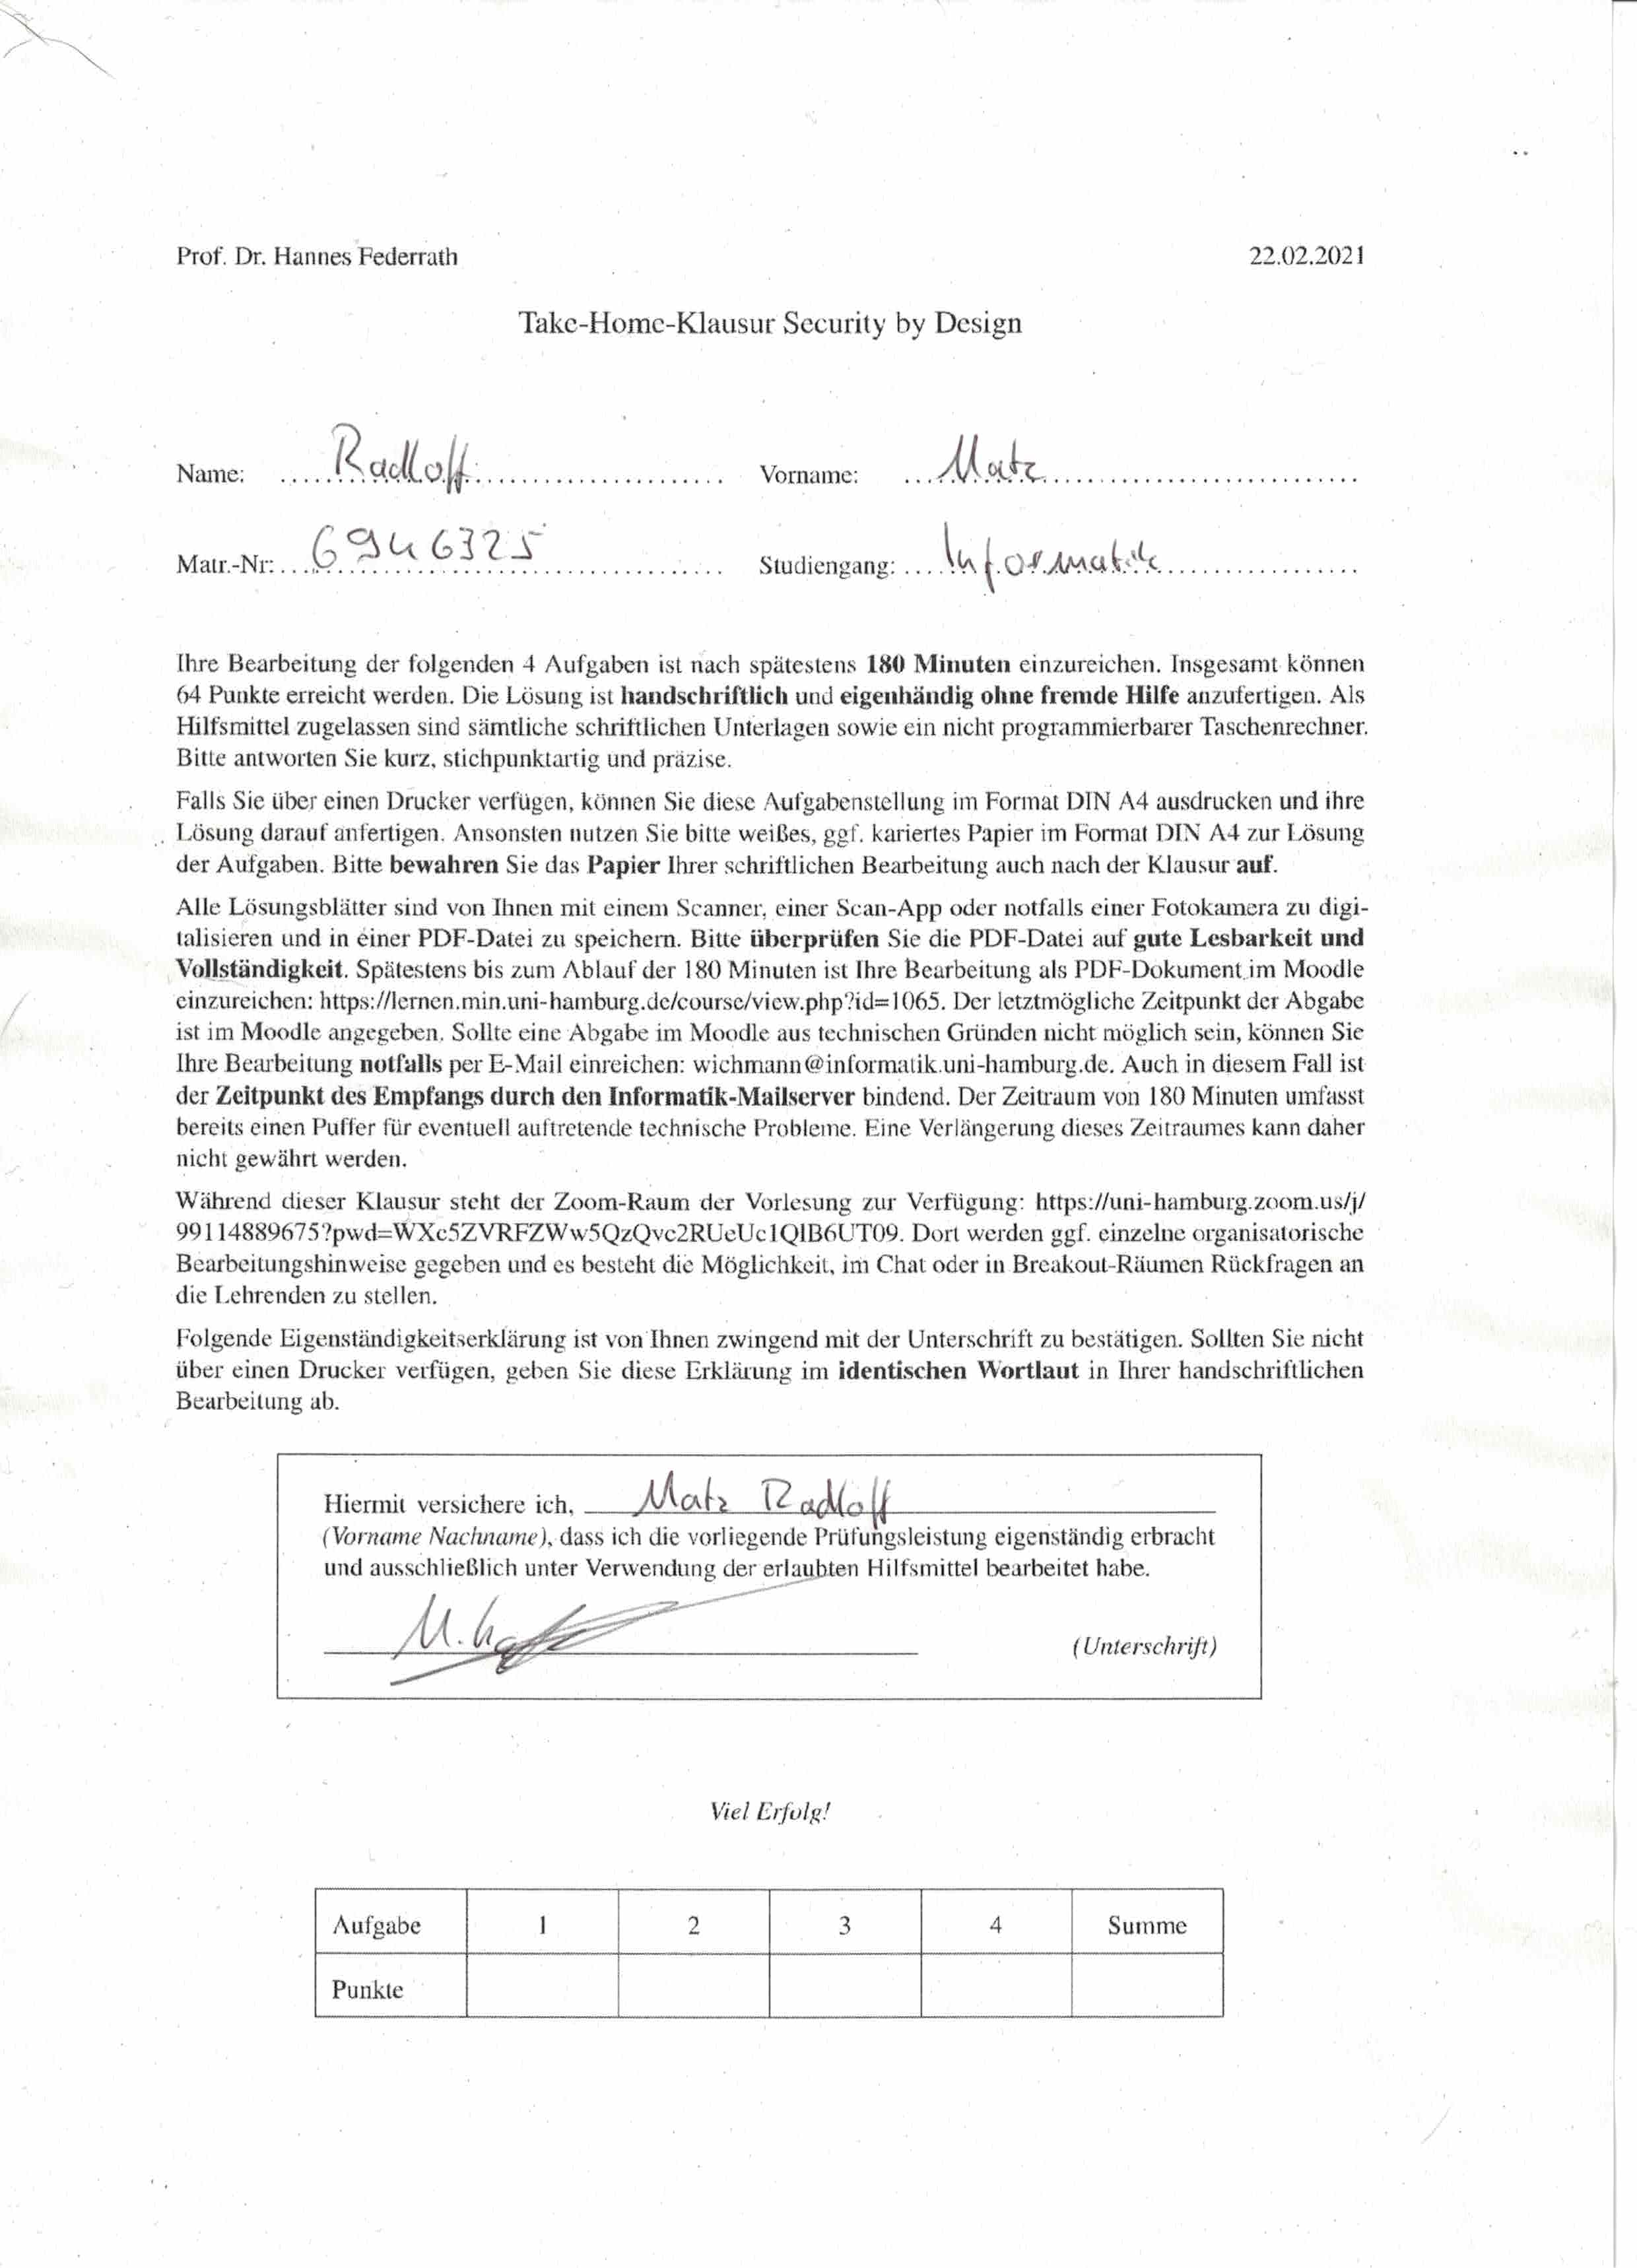 Prof. Dr. Hannes Federrath 22.02.2021
Take-Home-Klausur Security by Design
Name: Radloff Vorname: Matz
Matr.-Nr: 6946325 Studiengang: Informatik
Ihre Bearbeitung der folgenden 4 Aufgaben ist nach spätestens 180 Minuten einzureichen. Insgesamt können
64 Punkte erreicht werden. Die Lösung ist handschriftlich und eigenhändig ohne fremde Hilfe anzufertigen. Als
Hilfsmittel zugelassen sind sämtliche schriftlichen Unterlagen sowie ein nicht programmierbarer Taschenrechner.
Bitte antworten Sie kurz, stichpunktartig und präzise.
Falls Sie über einen Drucker verfügen, können Sie diese Aufgabenstellung im Format DIN A4 ausdrucken und ihre
Lösung darauf anfertigen. Ansonsten nutzen Sie bitte weißes, ggf. kariertes Papier im Format DIN A4 zur Lösung
der Aufgaben. Bitte bewahren Sie das Papier Ihrer schriftlichen Bearbeitung auch nach der Klausur auf.
Alle Lösungsblätter sind von Ihnen mit einem Scanner, einer Scan-App oder notfalls einer Fotokamera zu digi-
talisieren und in einer PDF-Datei zu speichern. Bitte überprüfen Sie die PDF-Datei auf gute Lesbarkeit und
Vollständigkeit. Spätestens bis zum Ablauf der 180 Minuten ist Ihre Bearbeitung als PDF-Dokument im Moodle
einzureichen: https://lernen.min.uni-hamburg.de/course/view.php?id=1065. Der letztmögliche Zeitpunkt der Abgabe
ist im Moodle angegeben. Sollte eine Abgabe im Moodle aus technischen Gründen nicht möglich sein, können Sie
Ihre Bearbeitung notfalls per E-Mail einreichen: wichmann@informatik.uni-hamburg.de. Auch in diesem Fall ist
der Zeitpunkt des Empfangs durch den Informatik-Mailserver bindend. Der Zeitraum von 180 Minuten umfasst
bereits einen Puffer für eventuell auftretende technische Probleme. Eine Verlängerung dieses Zeitraumes kann daher
nicht gewährt werden.
Während dieser Klausur steht der Zoom-Raum der Vorlesung zur Verfügung: https://uni-hamburg.zoom.us/j/
99114889675?pwd=WXc5ZVRFZWw5QzQvc2RUeUc1QlB6UT09. Dort werden ggf. einzelne organisatorische
Bearbeitungshinweise gegeben und es besteht die Möglichkeit, im Chat oder in Breakout-Räumen Rückfragen an
die Lehrenden zu stellen.
Folgende Eigenständigkeitserklärung ist von Ihnen zwingend mit der Unterschrift zu bestätigen. Sollten Sie nicht
über einen Drucker verfügen, geben Sie diese Erklärung im identischen Wortlaut in Ihrer handschriftlichen
Bearbeitung ab.
Hiermit versichere ich, Matz Radloff
(Vorname Nachname), dass ich die vorliegende Prüfungsleistung eigenständig erbracht
und ausschließlich unter Verwendung der erlaubten Hilfsmittel bearbeitet habe.
(Unterschrift)
Viel Erfolg!
Aufgabe 1 2 3 4 Summe
Punkte